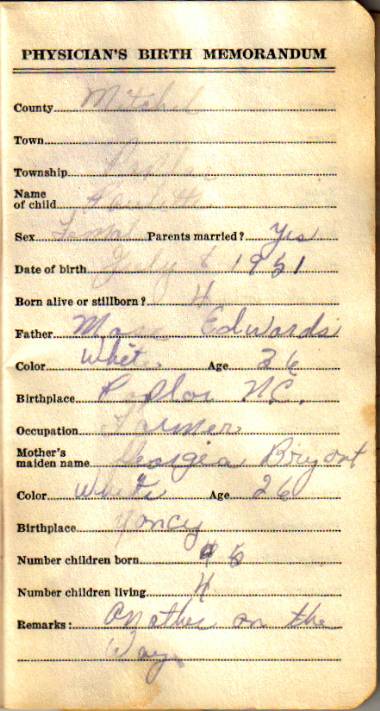 PHYSICIAN'S BIRTH MEMORANDUM
County Mitchel
Town
Township Poplar
Name
of child
Sex Femal Parents married? Yes
Date of birth July 1951
Born alive or stillborn? 4
Father Edwards
Color White Age 26
Birthplace Poplar NC.
Occupation Farmer
Mother's
maiden name Georgia Bryant
Color White Age 26
Birthplace Yancy
Number children born 5
Number children living 4
Remarks: Another on the
Way